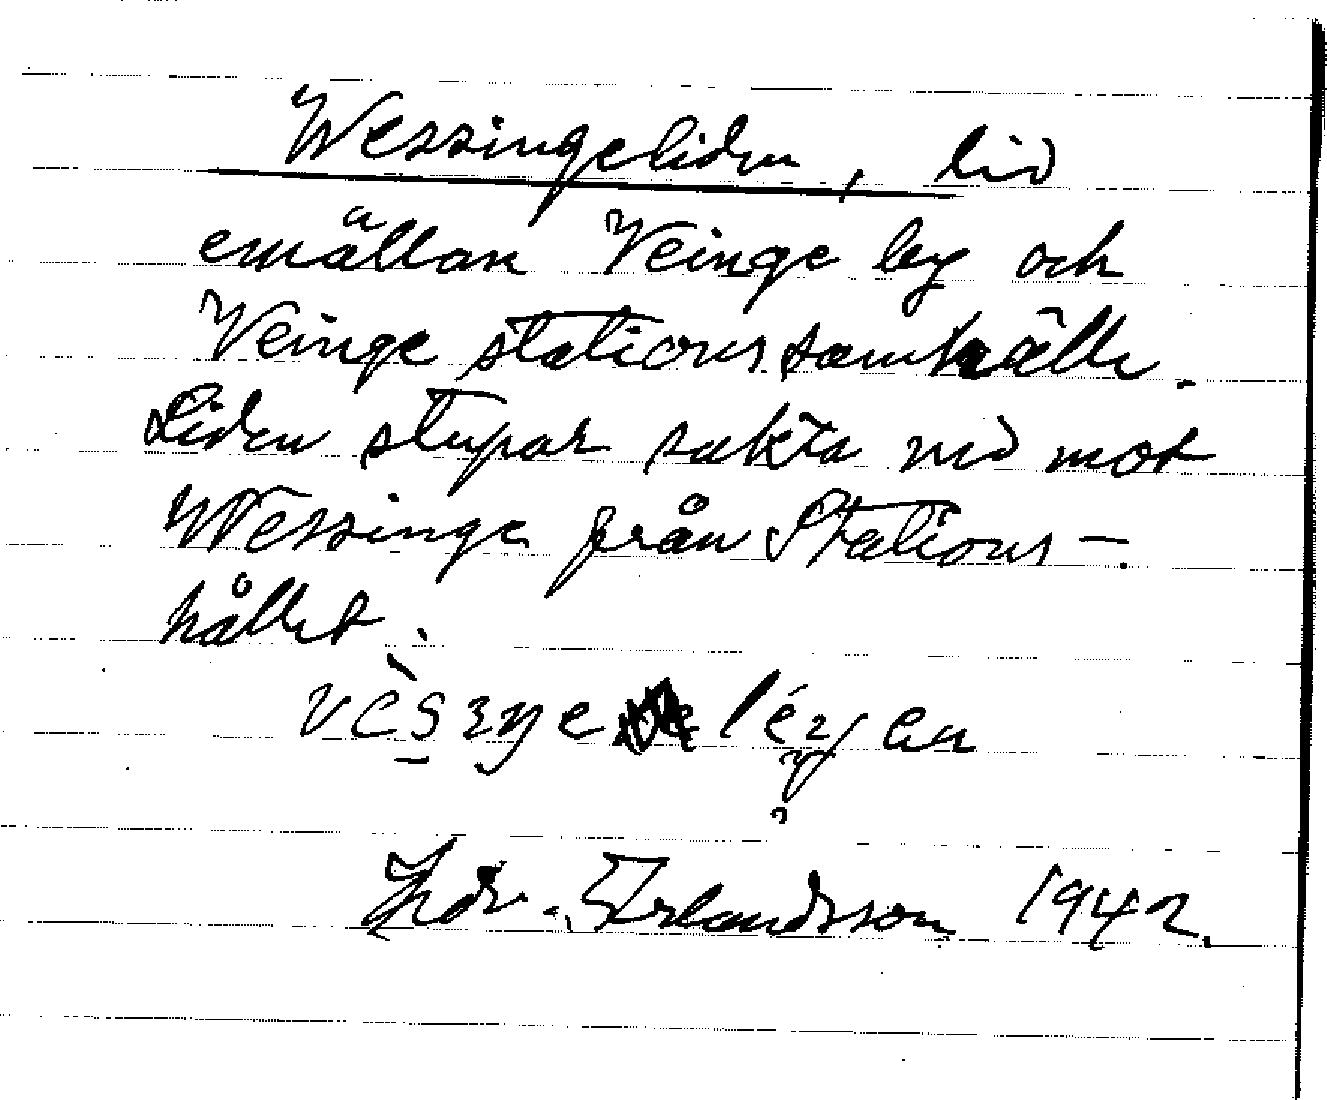 Wessingeliden, lid
emällan Veinge by och
Veinge stationssamhälle.
Liden stupar sakta ned mot
Wessinge från Stations-
hållet.
Erlandsson 1942.